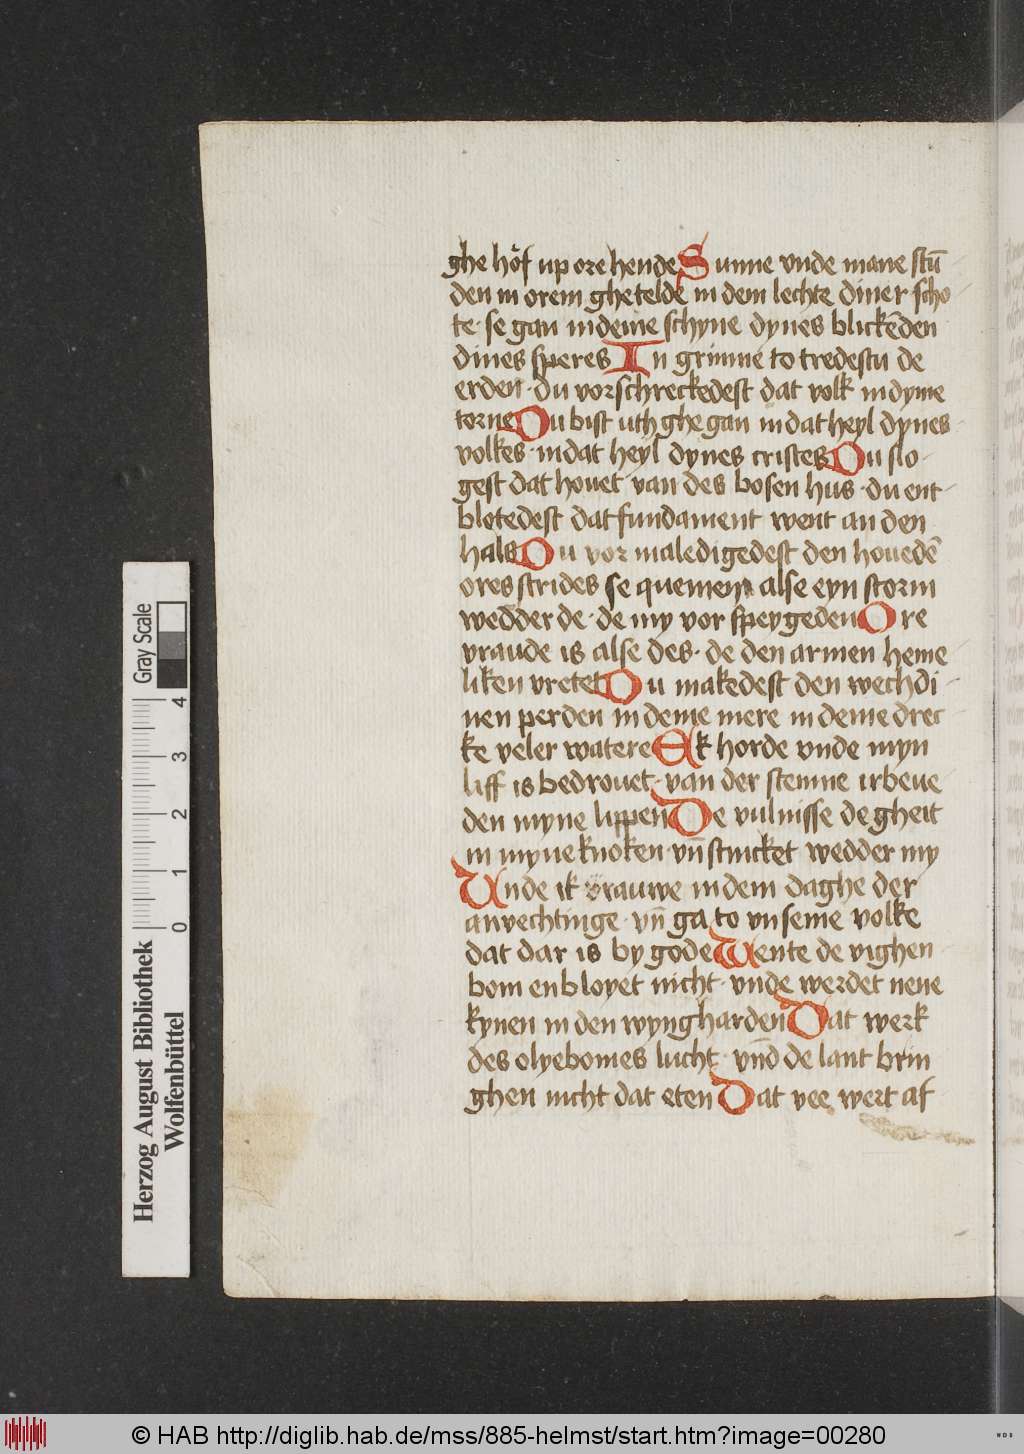 ghe hoͤf up ore hende Sunne vnde mane stū
den in orem ghetelde in dem lechte diner scho
te · se gan in deme schyne dynes blickēden
dines speres In grimme to tredestu de
erden · du vorschreckedest dat volk in dyme
torne Du bist uth ghe gan in dat heyl dynes
volkes · in dat heyl dynes cristes Du slo
gest dat hovet van des bosen hus · du ent
blotedest dat fundament went an den
hals Du vor maledigedest den houedē
ores strides se quemen alse eyn storm
wedder de · de my vor speygeden Ore
vraude is alse des · de den armen heme
liken vretet Du makedest den wech di
nen perden in deme mere in deme drec
ke veler watere Ek horde vnde myn
liff is bedrouet · van der stemne irbeue
den myne lippen De vulnisse de gheit
in myne knoken · vn̄ stincket wedder my
Vnde ik vrauwe in dem daghe der
anvechtinge · vn̄ ga to vnseme volke
dat dar is by gode Wente de vighen
bom en bloyet nicht · vnde werdet nene
kynen in den wyngharden Dat werk
des olyebomes lucht · vn̄d de lant brin
ghen nicht dat eten Dat vee wert af
Herzog August Bibliothek
Wolfenbüttel
Gray Scale
0 1 2 3 4
© HAB http://diglib.hab.de/mss/885-helmst/start.htm?image=00280